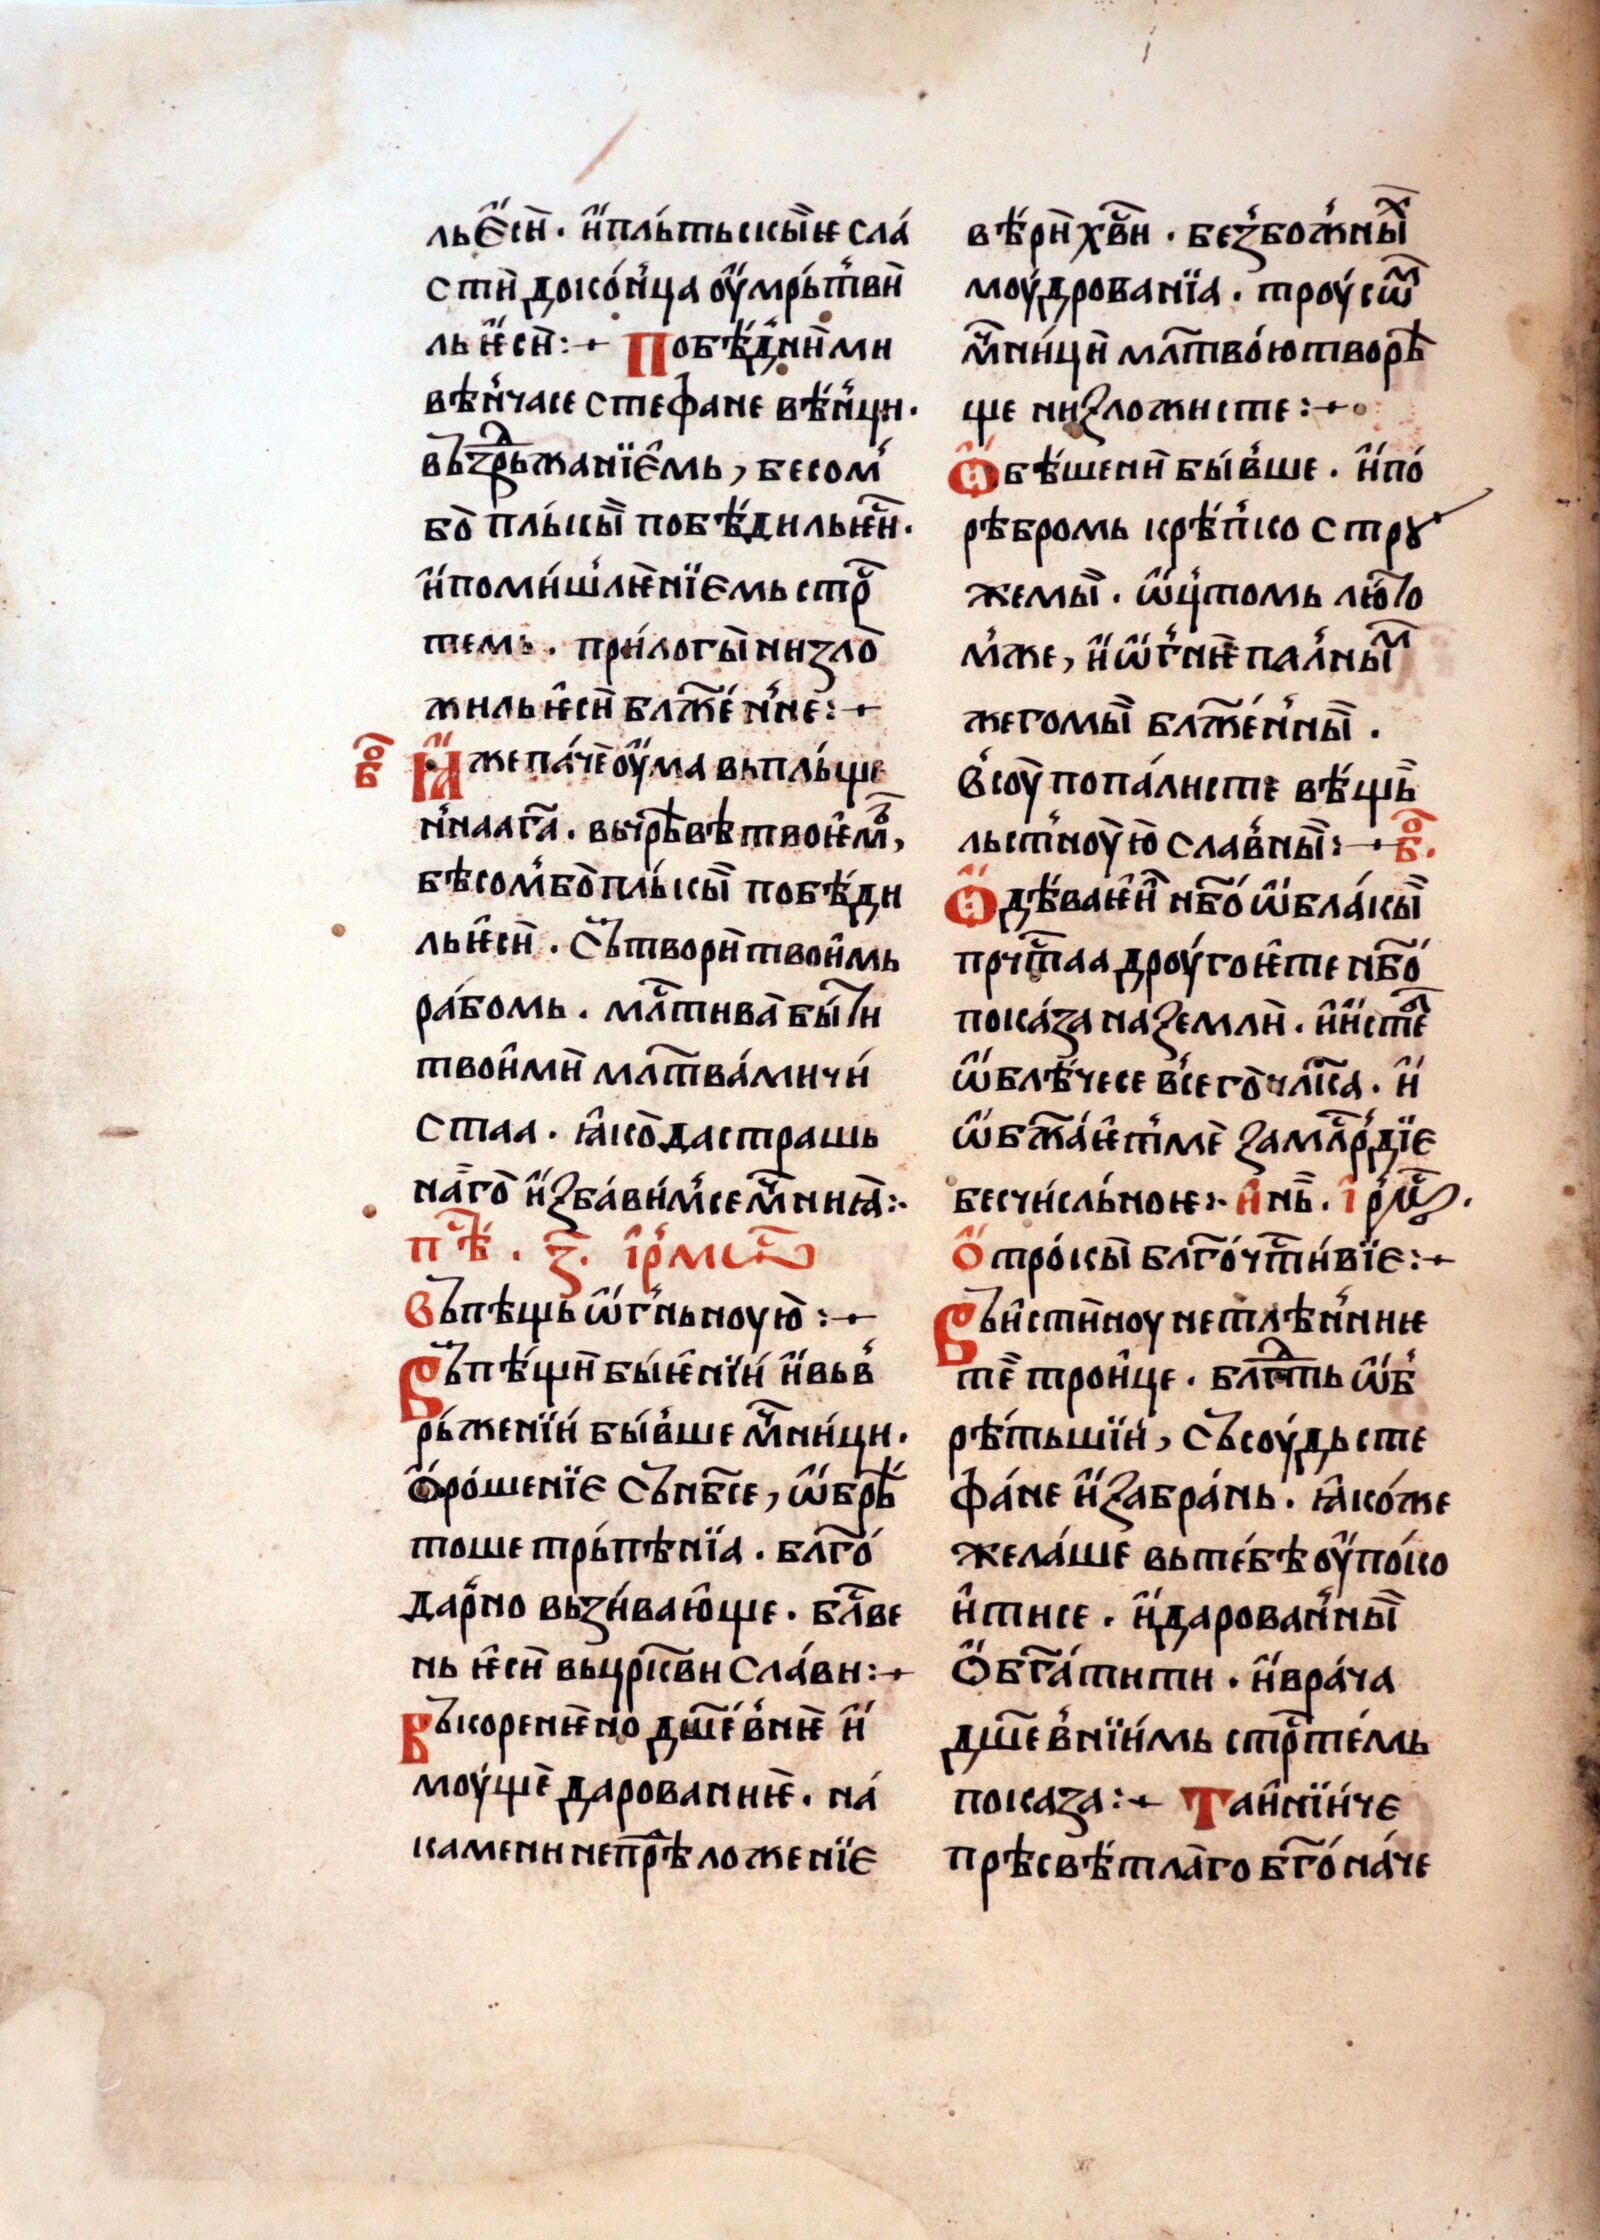 льѥ҆сѝ. и҆пль́тьскы̏ѥ сла́
сти̏ доко́н'ца ѹ҆мрь́т'ви̏
льѥ҆си̏:⁓ Побѣ́д'ни̏ми
вѣн'часе стефане вѣ́н'ци.
въз̾дрьжанїе҆мь, бесом'
бо̏ пль́кы̏ побѣ́дильѥси̏.
и҆поми́шлѥ̏нїемь стрⷭ҇
темь. при́логы̏ низло̏
жильѥ҆си̏ блже҃н'не:⁓
Бⷪ҇
Ꙗ҆же па́че̏ѹ҆ма вьпль́ще
н'нааго҃. вьчрѣ́вѣ твоѥ҆мⷹ,
бѣсом'бо̏пль́кы̏ побѣ́ди
льѥ҆си̏. сътвори̏ твои҆мь
ра́бомь. млⷭ҇тива̏ бы́ти
твои҆ми̏ млт҃ва́ми чи́
стаа. ꙗ҆ко̏ да страшь
на̏го̏ и҆зба́вим'се мч҃ниꙗ̏:
пⷭ҇ѣ. з҃. і҆рмѡⷭ҇
Въпѣщь ѡ҆г'ньную̏:⁓
Въпѣ́щи̏ бы́ѥ҆нїи́ и҆вьв'
рь́женїи́ бы́в'ше мч҃ни́ци.
ѻ҆ро́шенїе сън҃бсе, ѡ҆брѣ́
тоше трь́пѣнїа. бл҃го́
дар'но вьзи́ваю҆ще. блⷭ҇ве
нь ѥ҆си̏ вьцр҃кви сла́ви:⁓
Въкоренѥ̏но дш҃е́в'нѥ̏ и҆
моу́ще̏ дарованнѥ̏. на́
камени непрѣⷣложенїе
вѣ́рни̏ х҃ви. без'бож'ныⷯ
моу́дрованїа. троу́сѡⷨ
мч҃ни́ци̏ млт҃во́ю творѣ
ще низложисте:⁓
Ѻ҆бѣ́шени̏ бы́в'ше. и҆по́
рѣбромь крѣ́п'ко стрꙋ
жемы̏. ѡ҆ц'томь лю́то
м'же, и҆ѡ҆г'нѥ̏ пал'ныⷨ
жегомы̏ блже҃н'ны̏.
в'соу̏ попа́листе вѣ́щь̏
льст'ноу̏ю̏ слав'ны̏:⁓ бⷪ҇.
Ѻ҆дѣ́ваѥ҆и̏ нб҃о́ ѡ҆бла́кы̏
прчⷭ҇таа дроу́гоѥ҆те нб҃о́
пока́за на земли̏. и҆и҆стеⷣ
ѡ҆блѣ́чесе в'сего̏ члⷦ҇а. и҆
ѡ҆бжа҃ѥт'ме̏ за млⷭ҇рⷣдїе
бесчи́сль́ноѥ: и҆нь̏. і҆рмⷭ҇.
Ѻ҆тро́кы̏ бл҃го́чⷭ҇ти́вїе:⁓
Въи҆сти̏ноу нетлѣн'ниѥ
те̏ трои҆це. блⷣгть ѡ҆б'
рѣ́тьшїи́, съсоу́дь сте
фа́не и҆забра́нь. ꙗ҆ко́же
жела́ше вьте́бѣ ѹ҆по́ко
и҆тисе. и҆дарован'ны̏
ѻ҆бга҃ти́ти. и҆вра́ча
дш҃ев'нїи́мь стрⷭ҇те́мь
показа:⁓ Таи҆нїи́че
прѣсвѣ́тла̏го бг҃о́на́че